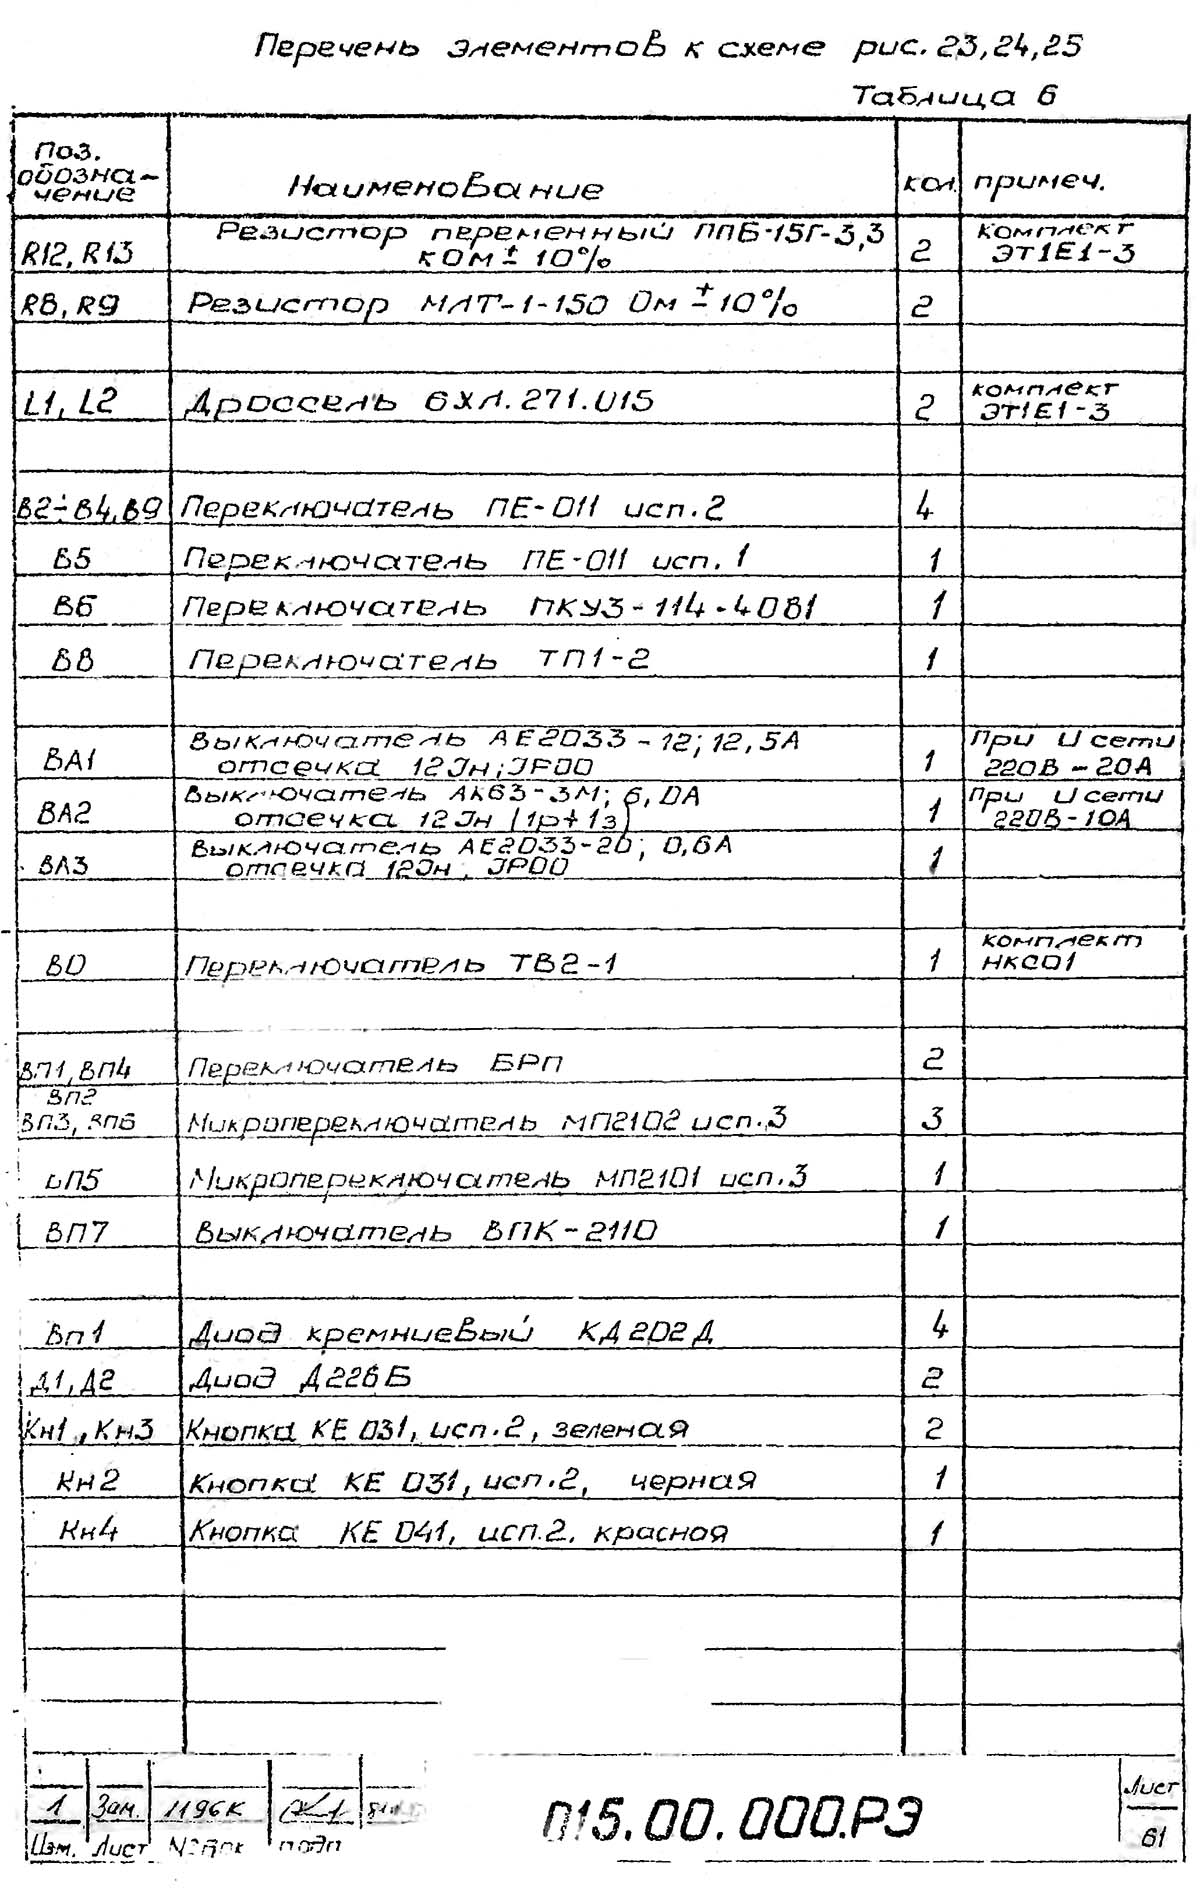 Перечень элементов к схеме рис. 23, 24, 25
Таблица 6
Поз. обозна-чение Наименование кол. примеч.
R12, R13 Резистор переменный ППБ-15Г-3,3 комплект
кОм ± 10% 2 ЭТ1Е1-3
R8, R9 Резистор МЛТ-1-150 Ом ± 10% 2
L1, L2 Дроссель 6ХЛ.271.015 2 комплект ЭТ1Е1-3
В2÷В4, В9 Переключатель ПЕ-011 исп. 2 4
В5 Переключатель ПЕ-011 исп. 1 1
В6 Переключатель ПКУ3-114-40В1 1
В8 Переключатель ТП1-2 1
ВА1 Выключатель АЕ2033-12; 12,5А При U сети
отсечка 12Jн; JP00 1 220В-20А
ВА2 Выключатель АК63-3М; 6,0А При U сети
отсечка 12Jн (1р+1з) 1 220В-10А
ВА3 Выключатель АЕ2033-20; 0,6А
отсечка 12Jн; JP00 1
В0 Переключатель ТВ2-1 1 комплект НКС01
ВП1, ВП4 Переключатель БРП 2
ВП2
ВП3, ВП6 Микропереключатель МП2102 исп. 3 3
ВП5 Микропереключатель МП2101 исп. 3 1
ВП7 Выключатель ВПК-2110 1
Вп1 Диод кремниевый КД202Д 4
Д1, Д2 Диод Д226Б 2
Кн1, Кн3 Кнопка КЕ 031, исп. 2, зеленая 2
Кн2 Кнопка КЕ 031, исп. 2, черная 1
Кн4 Кнопка КЕ 041, исп. 2. красной 1
1 Зам. 1196К
Изм. Лист № док подп
П15.00.000.РЭ
Лист
61